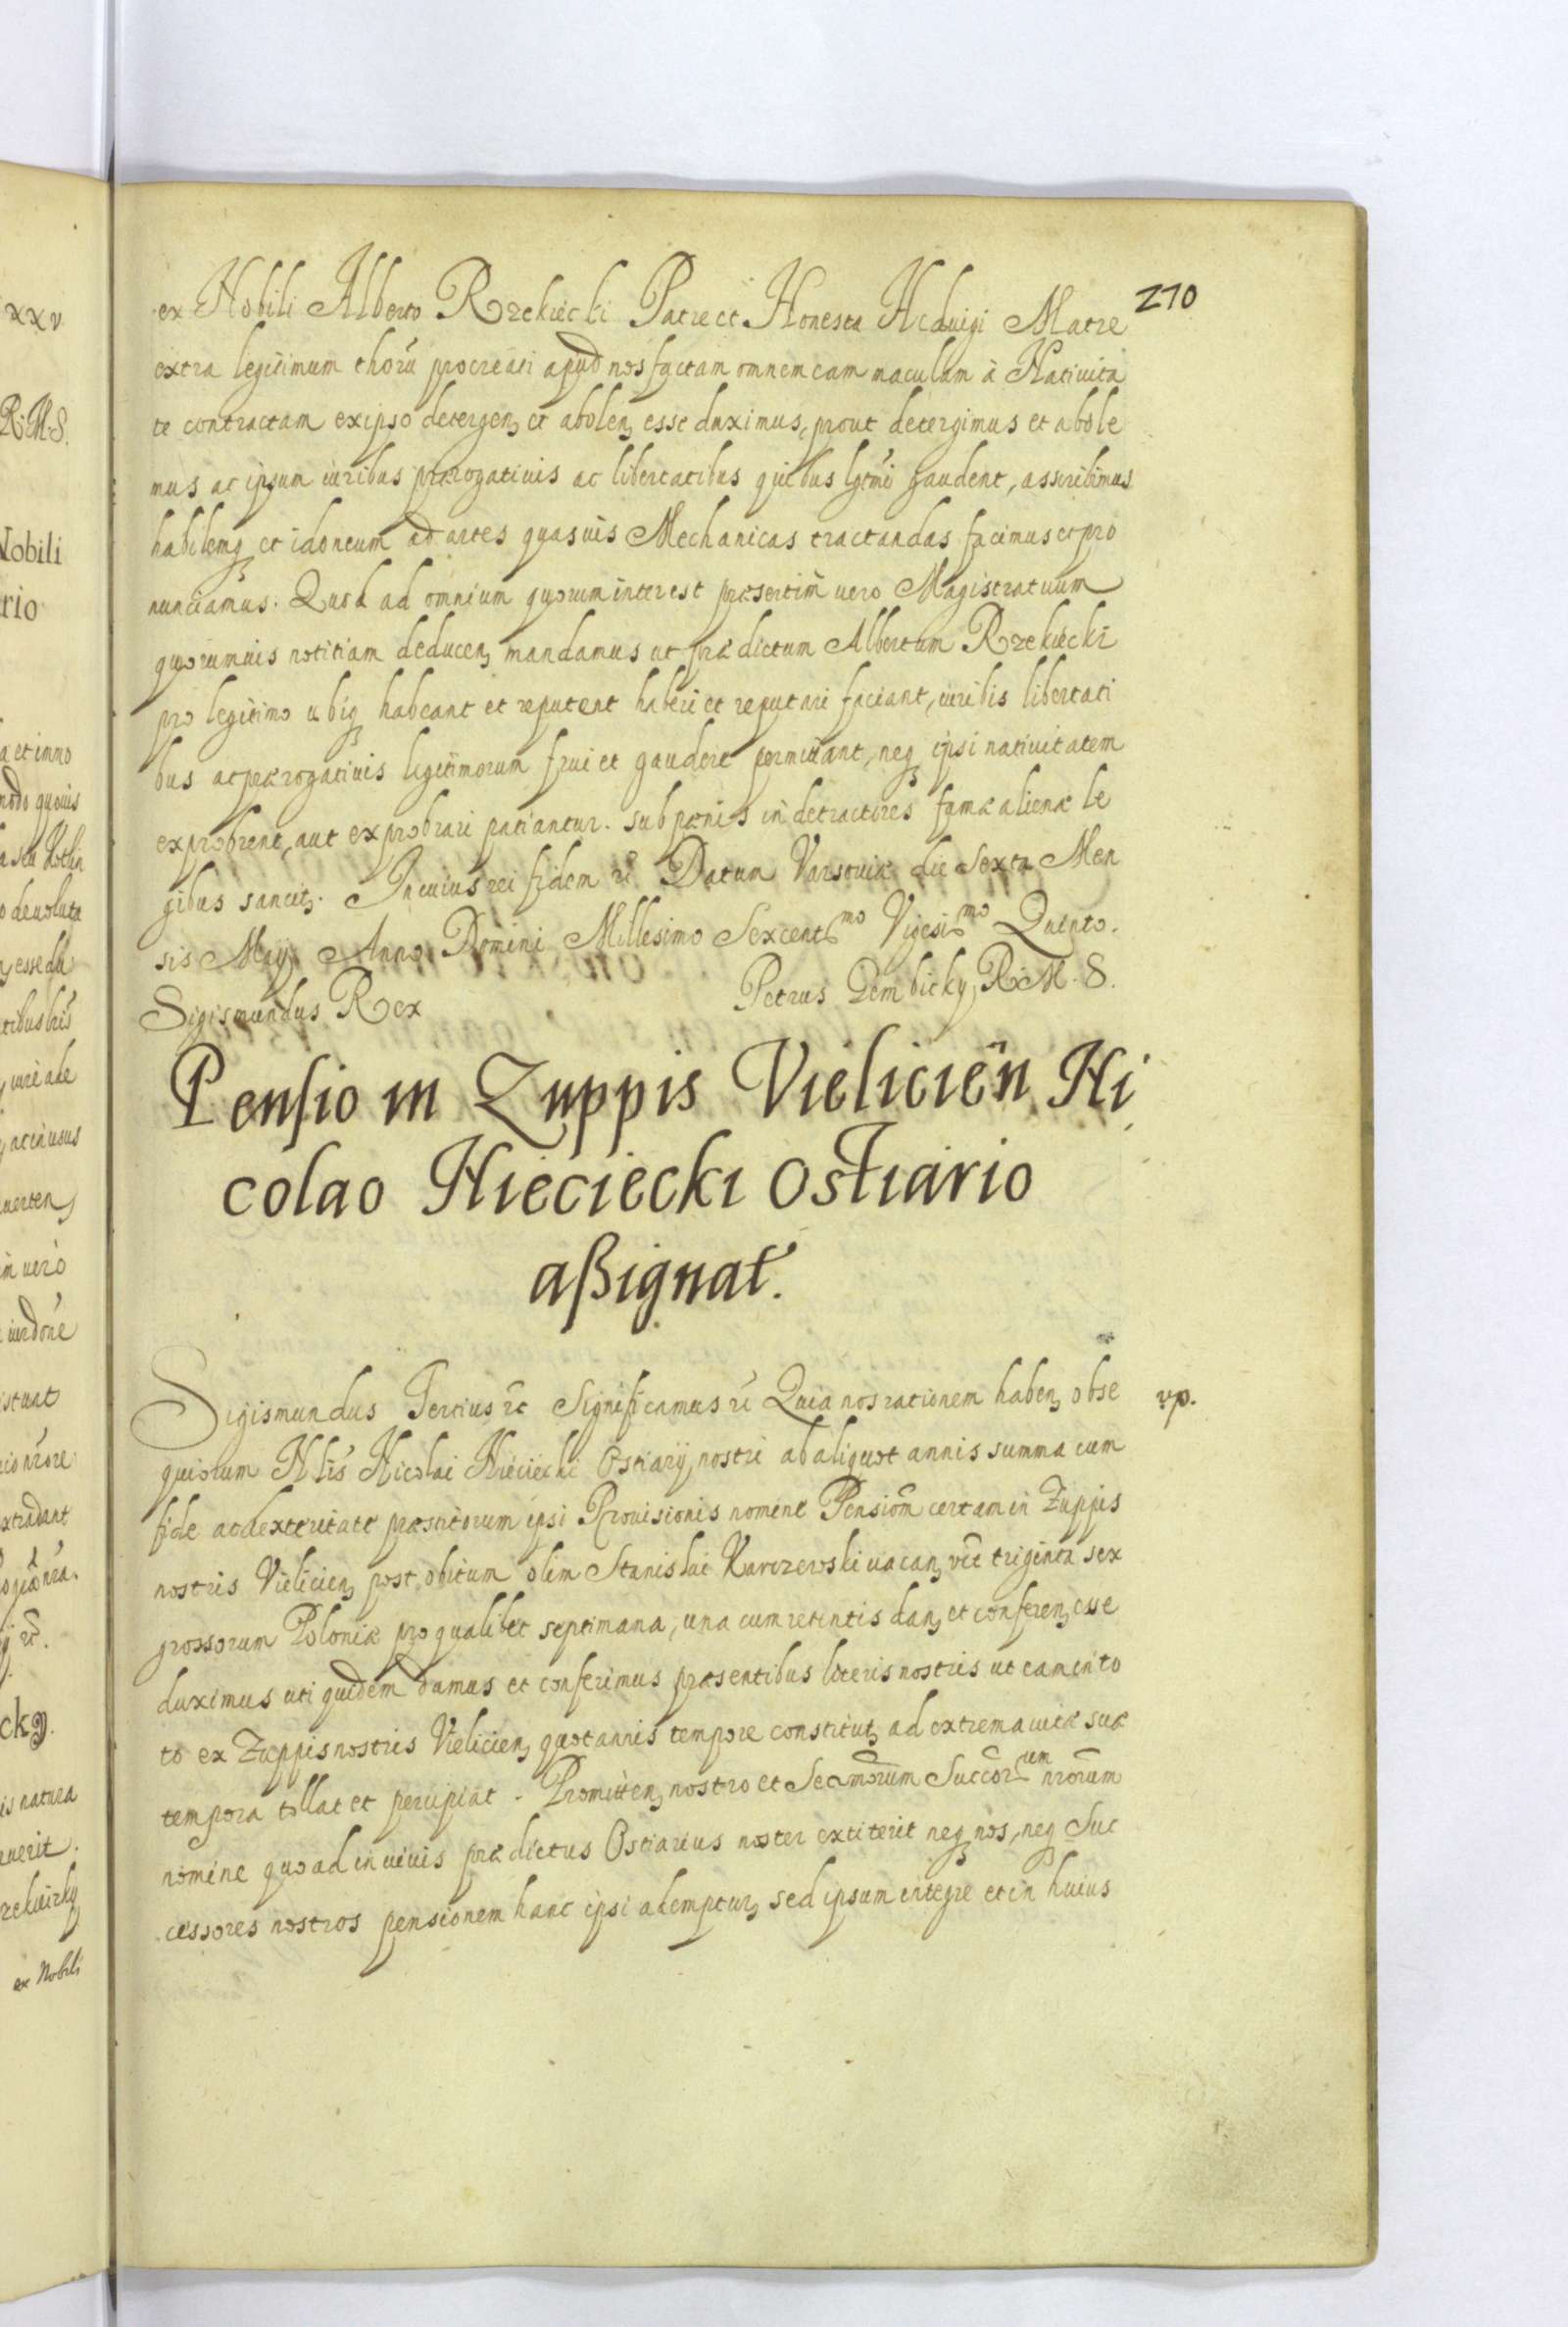 210
ex Nobili Alberto Rzekiecki Patre et Honesta Heduigi Matre
extra legitimum thorũ procreati apud nos factam omnem eam maculam à Natiuita
te contractam ex ipso detergen, et abolen, esse duximus, prout detergimus et abole
mus ac ipsum iuribus prærogatiuis ac libertatibus quibus lgtmi gaudent, asscribimus
habilemq, et idoneum ad artes quasuis Mechanicas tractandas facimus et pro
nunciamus. Quod ad omnium quorum interest præsertim uero Magistratuum
quorumuis notitiam deducen, mandamus ut prædictum Albertum Rzekiecki
pro legitimo ubiq, habeant et reputent haberi et reputari faciant, iuribis libertati
bus ac prærogatiuis legitimorum frui et gaudere permittant, neq, ipsi natiuitatem
exprobrent, aut exprobrari patiantur. sub pœnis in detractores famæ alienæ le
gibus sancit,. In cuius rei fidem etc̃ Datum Varsouiæ die Sexta Men
sis Maij Anno Domini Millesimo Sexcent.mo Vigesi.mo Quinto.
Sigismundus Rex Petrus Gembicky R.M.S.
Pensio in Zuppis Vieliciẽn Ni
colao Nieciecki Ostiario
aßignat.
vp.
Sigismundus Tertius etc̃ Significamus etc̃ Quia nos rationem haben, obse
quiorum Nlis Nicolai Nieciecki Ostiarij nostri ab aliquot annis summa cum
fide ac dexteritate præstitorum ipsi Prouisionis nomine Pensiom̃ certam in Zuppis
nostris Vielicien, post obitum olim Stanislai Karczewski uacan, vct̃ triginta sex
grossorum Poloniæ pro qualibet septimana, una cum retentis dan, et conferen, esse
duximus uti quidem damus et conferimus præsentibus literis nostris ut eam in to
to ex Zuppis nostris Vielicien, quotannis tempore constitut, ad extrema uitæ suæ
tempora tollat et percipiat. Promitten, nostro et Sermorum Succorum nrorum
nomine quoad in uiuis prædictus Ostiarius noster extiterit neq, nos, neq, Suc
cessores nostros pensionem hanc ipsi adempturos, sed ipsum integre et in huius